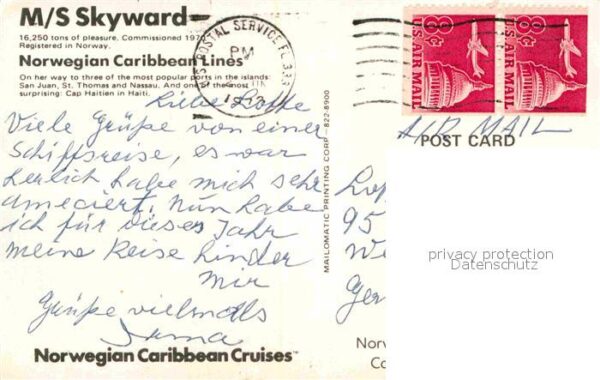 M/S Skyward
16,250 tons of pleasure. Commissioned 1970
Registered in Norway.
Norwegian Caribbean Lines
On her way to three of the most popular ports in the islands:
San Juan, St. Thomas and Nassau. And one of the most
surprising: Cap Haitien in Haiti.
U.S. POSTAL SERVICE FL 333
PM
8c US AIR MAIL
8c US AIR MAIL
AIR MAIL
POST CARD
Liebe Lotte
Viele Grüße von einer
Schiffsreise, es war
herlich habe mich sehr
ameciert. Nun habe
ich für dieses Jahr
meine Reise hinder
mir
Grüße vielmals
Irma
MAILOMATIC PRINTING CORP-822-8900
95
We
Ger
privacy protection
Datenschutz
Norwegian Caribbean Cruises™
Norw
Co